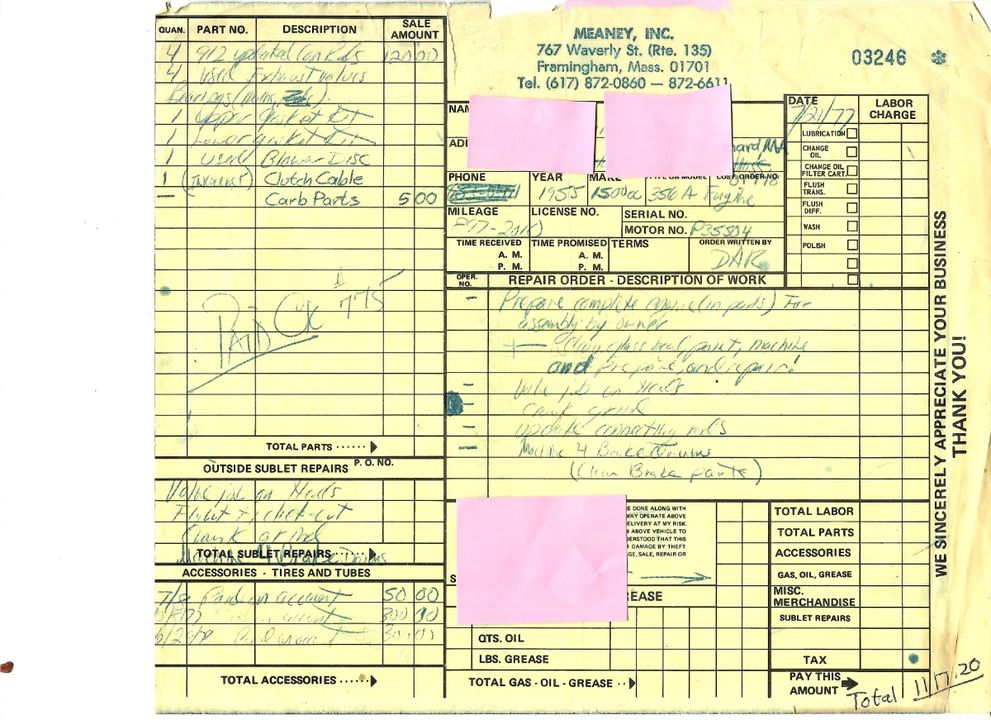 QUAN. PART NO. DESCRIPTION SALE AMOUNT
4 912 updated Con Rods 120 00
4 used Exhaust valves
Bearings (mains,
1 upper gasket Kit
1 Lower gasket Kit
1 used Blower Disc
1 Clutch Cable
— Carb Parts 5 00
PAID CK # 775
TOTAL PARTS
OUTSIDE SUBLET REPAIRS P. O. NO.
Valve job on Heads
Crank grind
Machine 4 Brake Drums
TOTAL SUBLET REPAIRS
ACCESSORIES - TIRES AND TUBES
Paid on account 50 00
account 300 00
TOTAL ACCESSORIES
MEANEY, INC.
767 Waverly St. (Rte. 135)
Framingham, Mass. 01701
Tel. (617) 872-0860 — 872-6611
03246
DATE 7/21/77
LABOR CHARGE
LUBRICATION
CHANGE OIL
CHANGE OIL FILTER CART.
FLUSH TRANS.
FLUSH DIFF.
WASH
POLISH
PHONE YEAR MAKE TYPE OR MODEL CUST. ORDER NO.
1955 356 A Engine
MILEAGE LICENSE NO. SERIAL NO.
MOTOR NO. P35504
TIME RECEIVED TIME PROMISED TERMS ORDER WRITTEN BY
A. M. A. M.
P. M. P. M.
DAK
OPER. NO. REPAIR ORDER - DESCRIPTION OF WORK
— Prepare complete engine (in parts) For
assembly by owner
glass bead, paint, machine
and Prepare, and repair!
— Valve job on Heads
— crank grind
— update connecting rods
— Machine 4 Brake Drums
(Clean Brake parts)
E DONE ALONG WITH
MAY OPERATE ABOVE
DELIVERY AT MY RISK.
ABOVE VEHICLE TO
DERSTOOD THAT THIS
DAMAGE BY THEFT
GE, SALE, REPAIR OR
EASE
QTS. OIL
LBS. GREASE
TOTAL GAS - OIL - GREASE
TOTAL LABOR
TOTAL PARTS
ACCESSORIES
GAS, OIL, GREASE
MISC. MERCHANDISE
SUBLET REPAIRS
TAX
PAY THIS AMOUNT
Total 1117.20
WE SINCERELY APPRECIATE YOUR BUSINESS
THANK YOU!